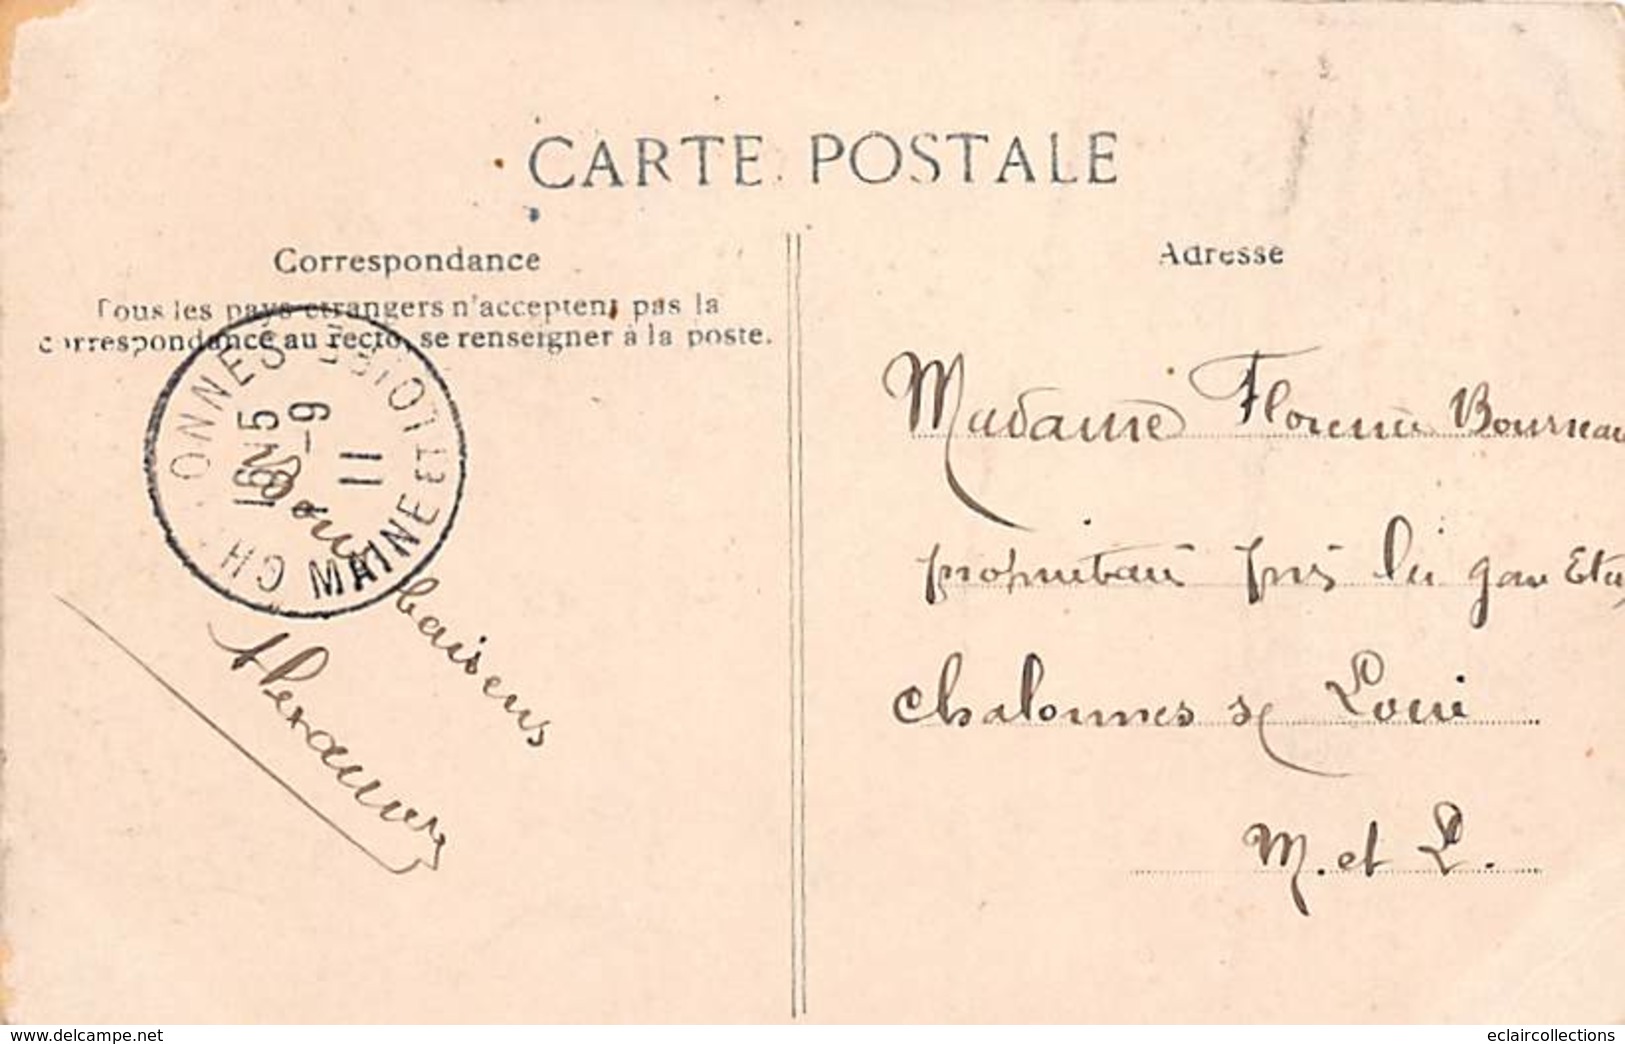 CARTE POSTALE
Correspondance
Tous les pays etrangers n'acceptent pas la
correspondance au recto, se renseigner à la poste.
16 15
8-9
11
MAINE ET
Bons baisers
Adresse
Madame Florence Bourneau
propriétaire près la gare Etat
Chalonnes s/ Loire
M. et L.
www.delcampe.net
eclaircollections